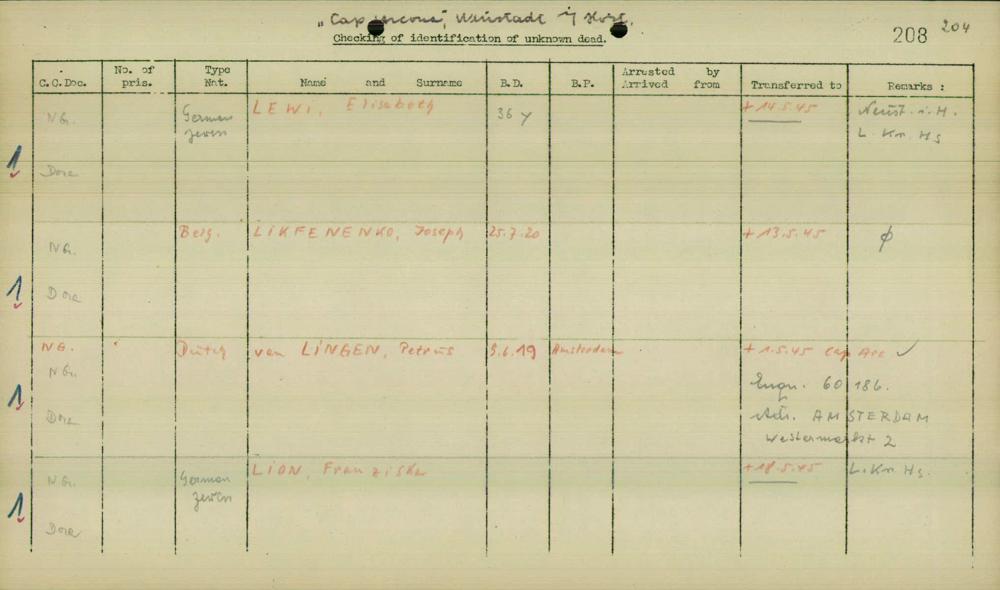 „Cap Arcona", Neustadt i/ Holst.
Checking of identification of unknown dead.
208 204
C.C.Doc. No. of pris. Type Nat. Name and Surname B.D. B.P. Arrested by Arrived from Transferred to Remarks :
NG. German LEWI, Elisabeth 36 y + 14.5.45 Neust. i. H.
L. Kr. Hs
1 Dora
NG. Belg. LIKFENENKO, Joseph 25.7.20 + 13.5.45 ϕ
1 Dora
NG. Dutch van LINGEN, Petrus 9.6.19 Amsterdam + 1.5.45 Cap Arc ✓
NG. 60 186.
1 Dora AMSTERDAM
Westermarkt 2
NG. German LION, Franziska + 18.5.45 L. Kr. Hs.
1 Dora